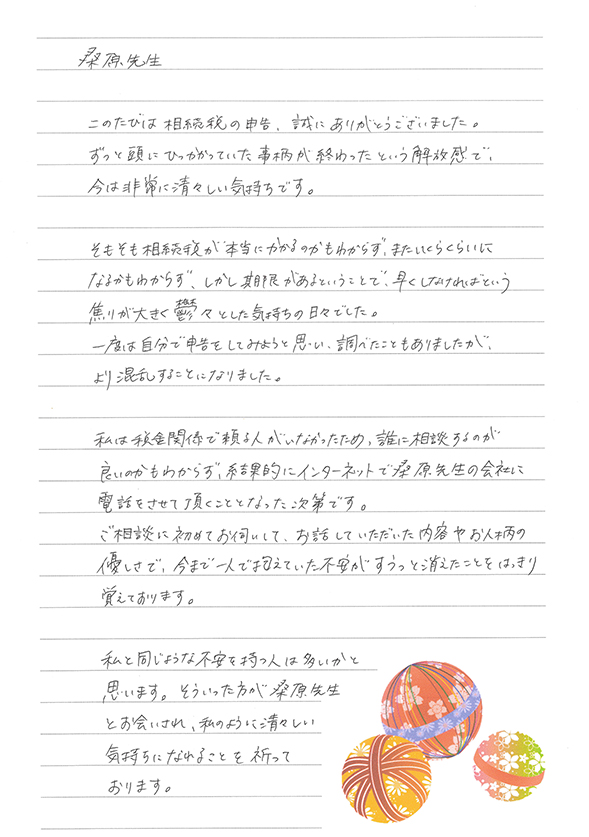 桑原先生
このたびは相続税の申告、誠にありがとうございました。
ずっと頭にひっかかっていた事柄が終わったという解放感で、
今は非常に清々しい気持ちです。
そもそも相続税が本当にかかるのかもわからず、またいくらくらいに
なるかもわからず、しかし期限があるということで、早くしなければという
焦りが大きく鬱々とした気持ちの日々でした。
一度は自分で申告をしてみようと思い、調べたこともありましたが、
より混乱することになりました。
私は税金関係で頼る人がいなかったため、誰に相談するのが
良いのかもわからず、結果的にインターネットで桑原先生の会社に
電話をさせて頂くこととなった次第です。
ご相談に初めてお伺いして、お話していただいた内容やお人柄の
優しさで、今まで一人で抱えていた不安がすうっと消えたことをはっきり
覚えております。
私と同じような不安を持つ人は多いかと
思います。そういった方が桑原先生
とお会いされ、私のように清々しい
気持ちになれることを祈って
おります。